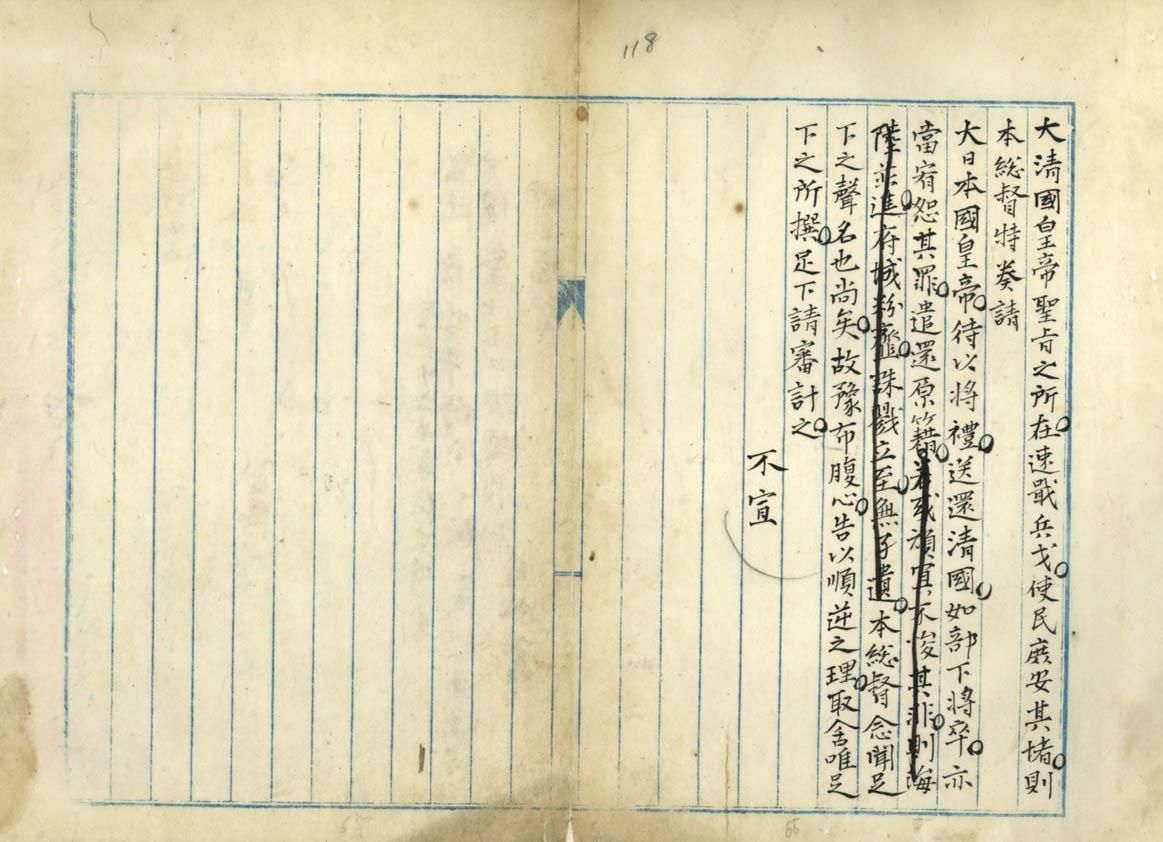 118
大清國皇帝聖旨之所在。速戢兵戈。使民庶安其堵。則
本総督特奏請
大日本國皇帝。待以将禮。送還清國。如部下将卒。亦
當宥恕其罪。遣還原籍。若或頑冥不悛其非。則海
陸並進。府城粉韲。誅戮立至。無孑遺。本総督念聞足
下之聲名也尚矣。故豫布腹心。告以順逆之理。取舎唯足
下之所撰。足下請審計之。
不宣